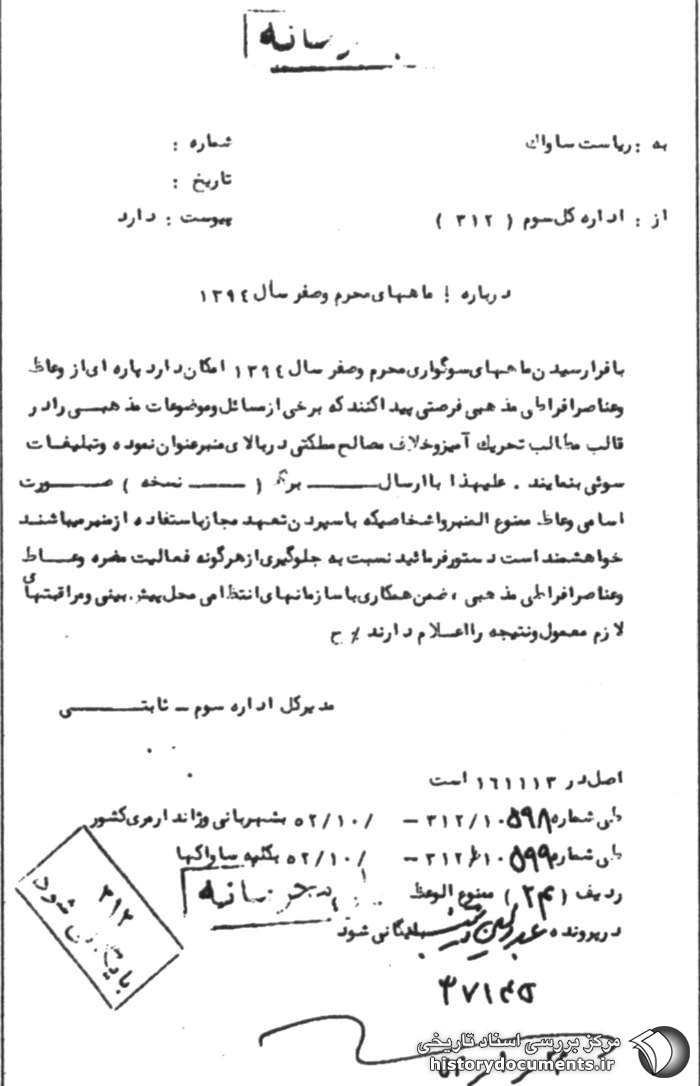 به : ریاست ساواک
شماره :
تاریخ :
از : اداره کل سوم ( ۳۱۲ )
پیوست : دارد
درباره : ماههای محرم و صفر سال ۱۳۹٤
با فرا رسیدن ماههای سوگواری محرم و صفر سال ۱۳۹٤ امکان دارد پاره ای از وعاظ
و عناصر افراطی مذهبی فرصتی پیدا کنند که برخی از مسائل و موضوعات مذهبی را در
قالب مطالب تحریک آمیز و خلاف مصالح مملکتی در بالای منبر عنوان نموده و تبلیغات
سوئی بنمایند . علیهذا با ارسال ـــــ برگ ( ـــــ نسخه ) صورت
اسامی وعاظ ممنوع المنبر و اشخاصیکه با سپردن تعهد مجاز باستفاده از منبر میباشند
خواهشمند است دستور فرمائید نسبت به جلوگیری از هرگونه فعالیت مضره وعاظ
و عناصر افراطی مذهبی ، ضمن همکاری با سازمانهای انتظامی محل پیش بینی و مراقبتهای
لازم معمول و نتیجه را اعلام دارند ٪ ح
مدیرکل اداره سوم ـ ثابتی
اصل در ۱٦۱۱۱۳ است
طی شماره ۵۹۸ ۳۱۲/۱۰ ـ /۵۲/۱۰ بشهربانی و ژاندارمری کشور
طی شماره ۵۹۹ ۳۱۲/۱۰ ـ /۵۲/۱۰ بکلیه ساواکها
ردیف ( ۲۴ ) ممنوع الوعظ
در پرونده بایگانی شود
۳۱۲
بایگانی شود
۳۷۱۴۵
مرکز بررسی اسناد تاریخی
historydocuments.ir